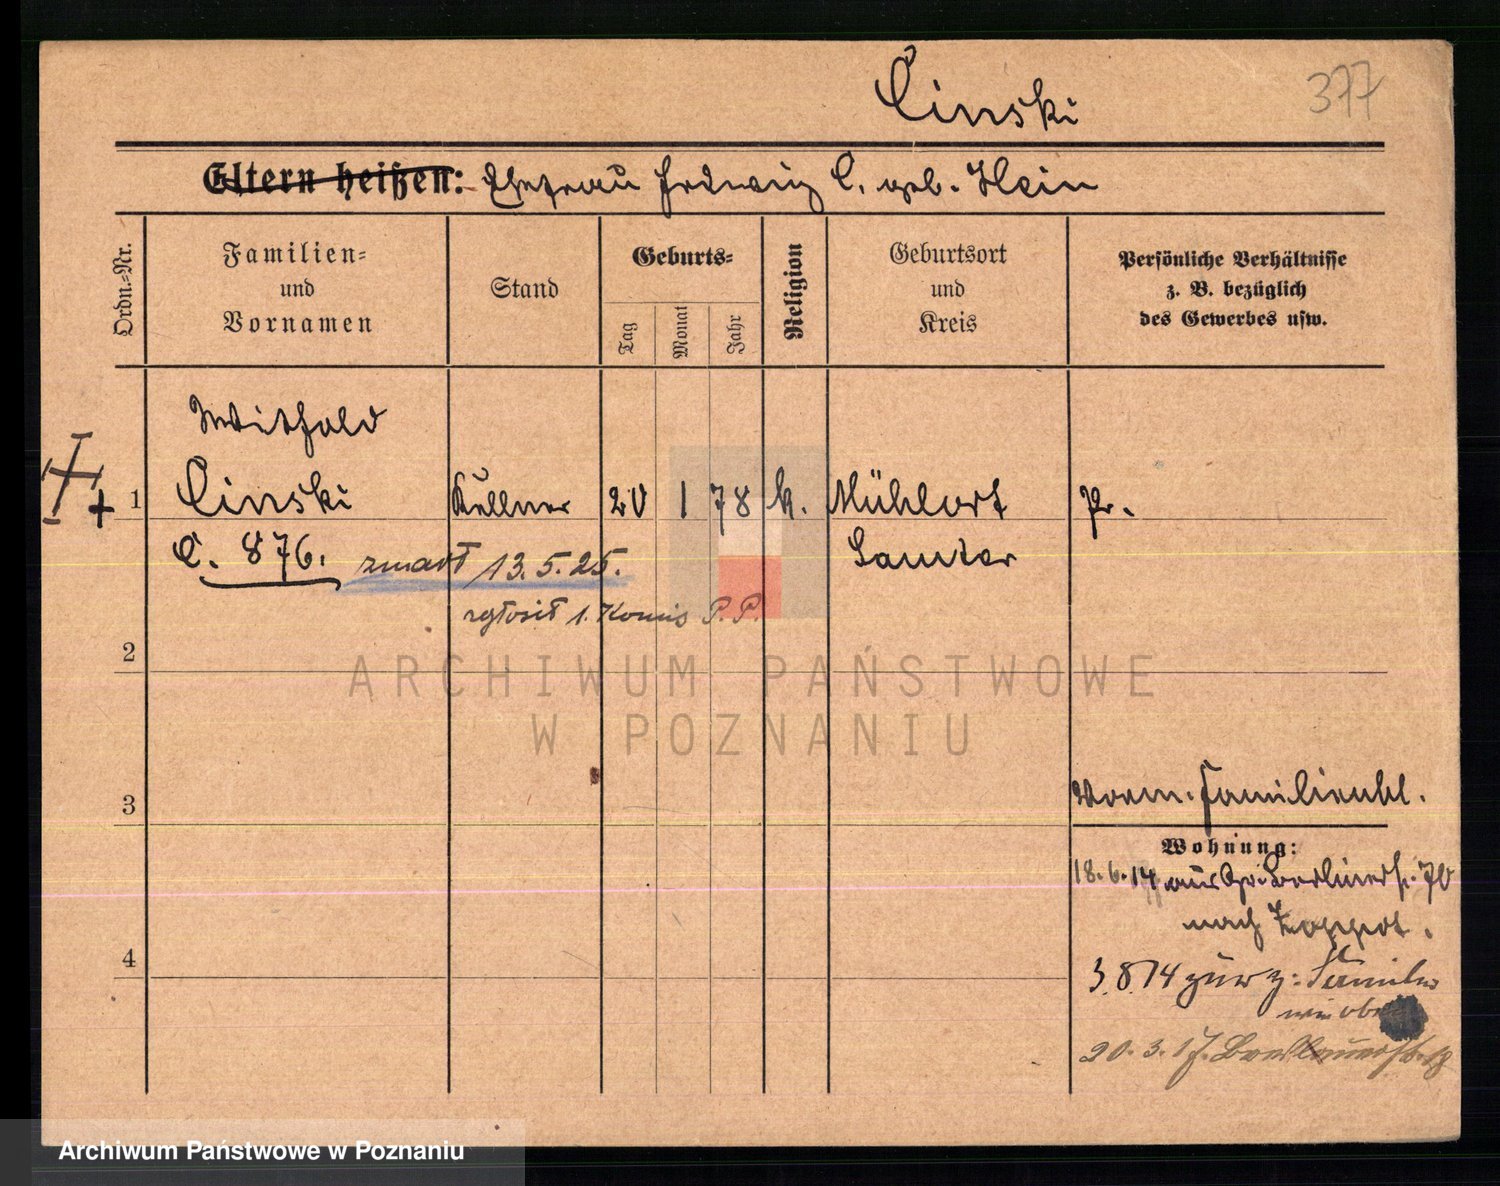 Cinski
377
Eltern heißen: Ehefrau Hedwig C. geb. Klein
Ordn.-Nr.
Familien-
und
Vornamen
Stand
Geburts-
Tag
Monat
Jahr
Religion
Geburtsort
und
Kreis
Persönliche Verhältnisse
z. B. bezüglich
des Gewerbes usw.
Withold
1 Cinski Kellner 20 1 78 k. Mühlort Pr.
C. 876. zmarł 13.5.25. Samter
zgłosił 1. Komis P.P.
2
ARCHIWUM PAŃSTWOWE
W POZNANIU
3
Vorm. Familienbl.
Wohnung:
18.6.14 aus Gr. Berlinerstr. 70
nach Zoppot.
4
3.8.14 zur z: Familie
wie oben
20.3.17. Breslauerstr. 18
Archiwum Państwowe w Poznaniu